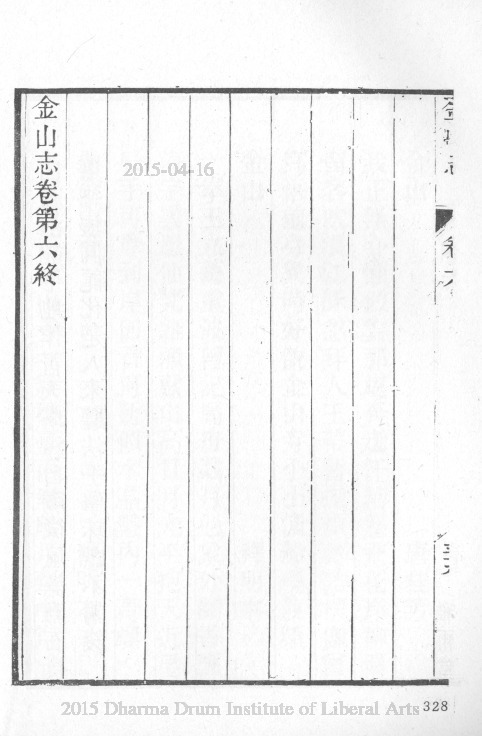 金山志 卷六
金山志卷第六終
2015-04-16
2015 Dharma Drum Institute of Liberal Arts
328